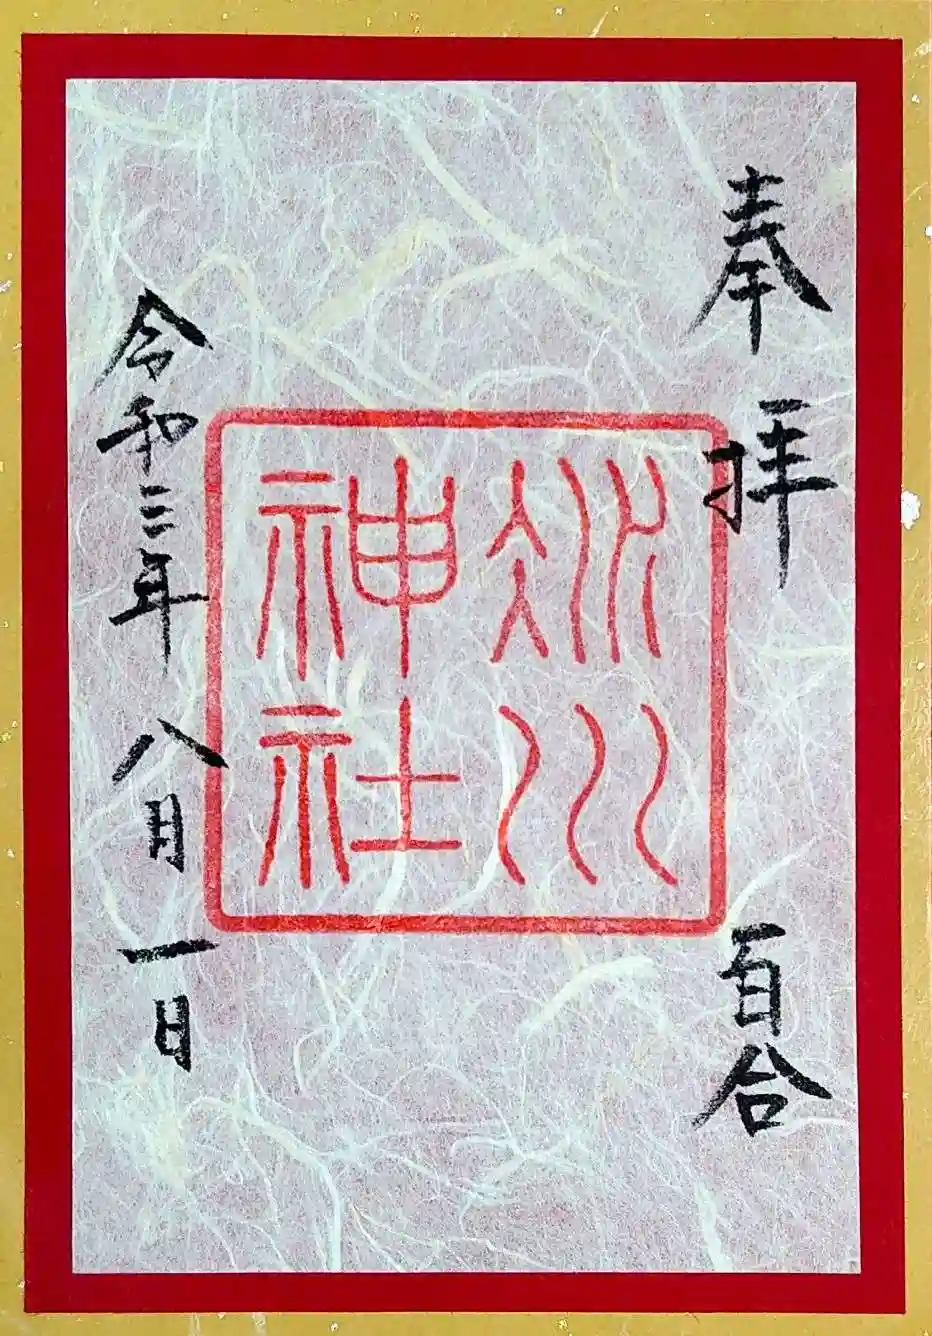 奉拝 百合
冰川
神社
令和三年八月一日